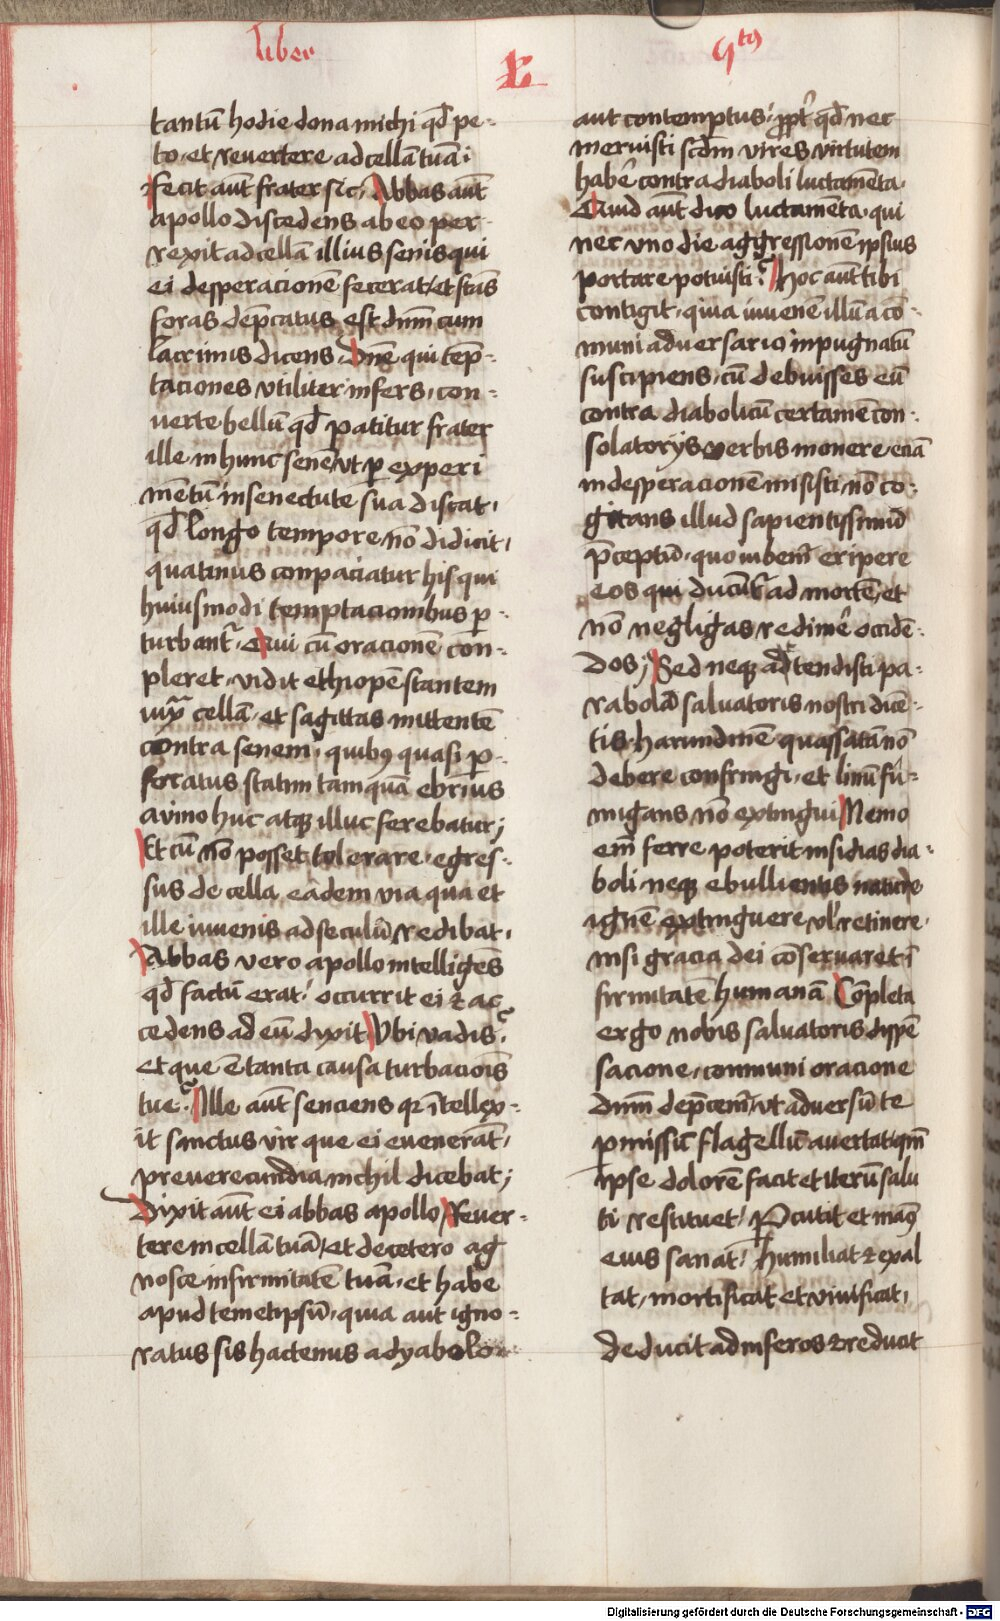 liber
E
qͭꝯ
tantū hodie dona michi qđ pe-
to, et revertere ad cellā tuā.
fecit aūt frater sic, Abbas aūt
apollo discedens ab eo per-
rexit ad cellā illius senis qui
ei desperacionē fecerat, et stās
foras dep̄catus est dnm̄ cum
lacrimis dicens, dn̄e qui tēp-
taciones utiliter infers, con-
verte bellū qđ patitur frater
ille in hunc senē, vt ꝑ experi
mētū in senectute sua discat,
qđ longo tempore nō didicit,
quatinus conpaciatur his qui
huiusmodi temptacionibus ꝑ-
turbantr̄. Qui cū oracionē con-
pleret, vidit ethiopē stantem
iuxᷓ cellā, et sagittas mittentē
contra senem, quibꝰ quasi ꝑ-
forcatus statim tamquā ebrius
a vino huc atqꝫ illuc ferebatur;
Et cū nō posset tolerare, egres-
sus de cella eadem via qua et
ille iuvenis ad seculū redibat.
Abbas vero apollo intelligēs
qđ factū erat, occurrit ei ⁊ ac-
cedens ad eū dixit Vbi vadis?
et que ē tanta causa turbacioīs
tue? Ille aūt senciens qꝛ ītellex-
it sanctus vir que ei evenerāt,
pre verecundia nichil dicebat;
Dixit aūt ei abbas apollo Rever-
tere in cellā tuā, et de cetero ag
nosce infirmitatē tuā, et habe
apud temetipsū, quia aut igno-
ratus sis hactenus a dyabolo
aut contemptus, ꝓpt̄ qđ nec
meruisti scd̄m vires virtutem
habē contra diaboli luctamēta.
Quid aūt dico luctamēta, qui
nec vno die aggressionē ipsius
portare potuisti? Hoc aūt tibi
contigit, quia iuvenē illū a cō-
muni adversario inpugnatū
suscipiens, cū debuisses eū
contra diabolicū certamē con-
solatorijs verbis monere eciā
in desperacionē misisti nō co-
gitans illud sapientissimū
p̄ceptū, quo iubem̄ eripere
eos qui ducūt̄ ad mortē, et
nō negligas redimē occidē-
dos; Sed neqꝫ adtendisti pa-
rabolā salvatoris nostri dicē-
tis, harundinē quassatā nō
debere confringi, et linū fu-
migans nō extingui Nemo
em̄ ferre poterit insidias dia-
boli neqꝫ ebullientis nature
ignē extinguere vl̄ retinere,
nisi gracia dei cōservaret ī
firmitatē humanā Cōpleta
ergo nobis salvatoris dispē
sacione, communi oracione
dnm̄ dep̄cem̄, vt adversū te
ꝑmissū flagellū avertat, qm̄
ipse dolorē facit et iterū salu
ti restituet, Percutit et manꝰ
eius sanat, humiliat ⁊ exal
tat, mortificat et vivificat,
deducit ad inferos ⁊ reducit
Digitalisierung gefördert durch die Deutsche Forschungsgemeinschaft - DFG